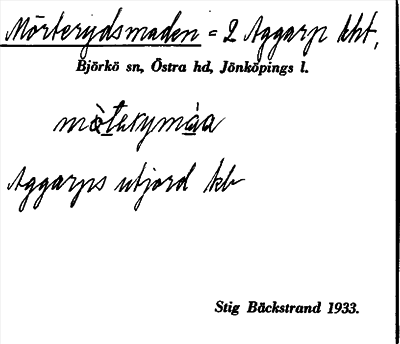 Mörterydsmaden = 2 Aggarp kht,
Björkö sn, Östra hd, Jönköpings l.
Aggarps utjord kb
Stig Bäckstrand 1933.